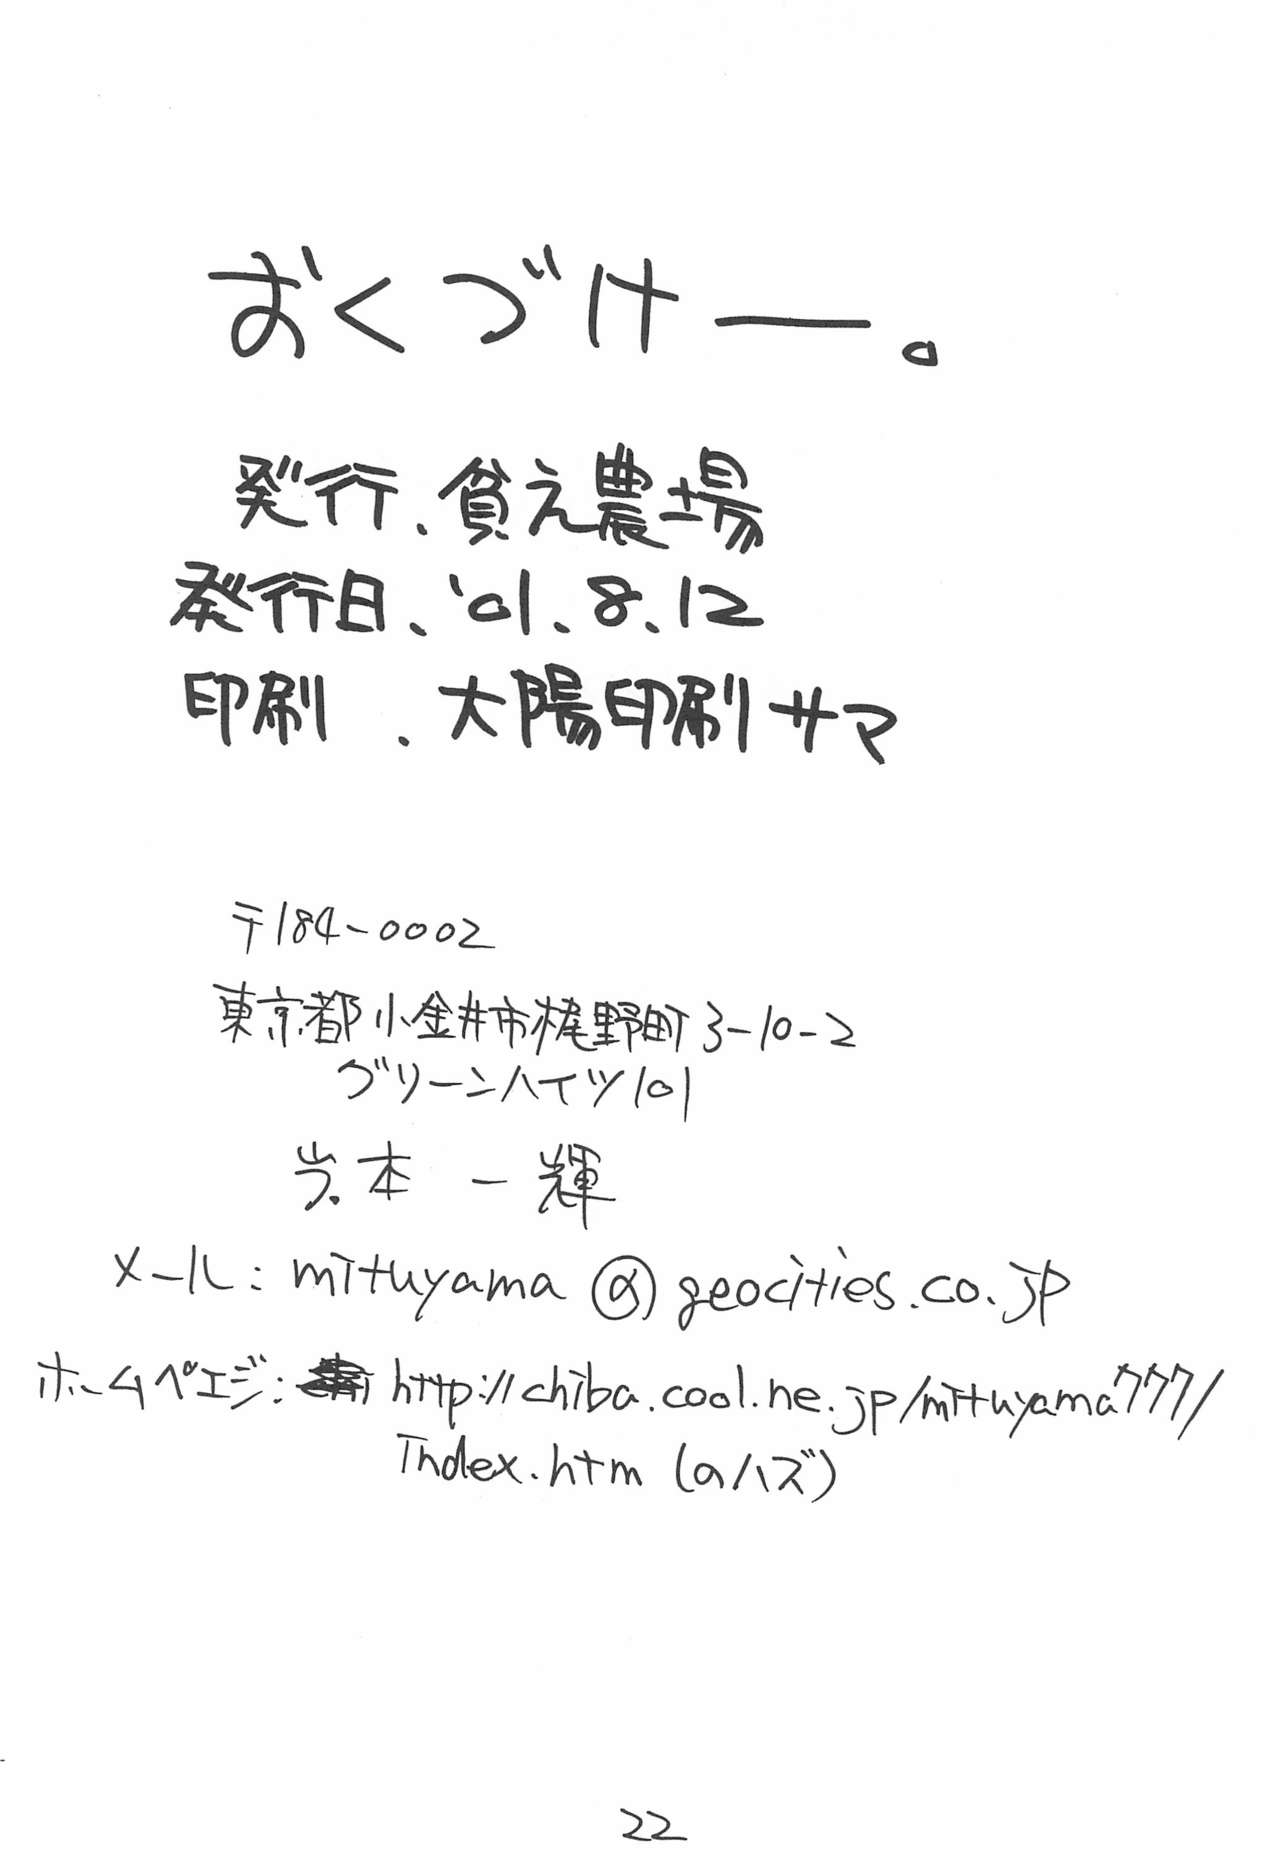 おくづけー。
発行、貧え農場
発行日、'01.8.12
印刷 、大陽印刷サマ
〒184-0002
東京都小金井市梶野町3-10-2
グリーンハイツ101
岩本 一輝
メール：mituyama@geocities.co.jp
ホームペェジ：http://chiba.cool.ne.jp/mituyama777/
Index.htm (のハズ)
22